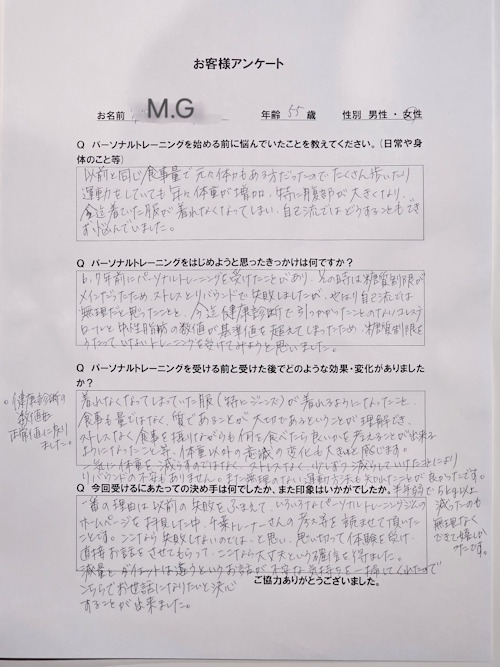 お客様アンケート
お名前 M.G 年齢 55 歳 性別 男性・女性
Q パーソナルトレーニングを始める前に悩んでいたことを教えてください。(日常や身
体のこと等)
以前と同じ食事量で元々体力もある方だったのでたくさん歩いたり
運動をしていても年々体重が増加、特に腹部が大きくなり、
今迄着ていた服が着れなくなってしまい、自己流ではどうすることもでき
ず悩んでいました。
Q パーソナルトレーニングをはじめようと思ったきっかけは何ですか？
6,7年前にパーソナルトレーニングを受けたことがあり、その時は糖質制限が
メインだったため、ストレスとリバウンドで失敗しましたが、やはり自己流では
無理だと思ったことと、今迄健康診断で引っかかったことのないコレステ
ロールと中性脂肪の数値が基準値を超えてしまったため、糖質制限を
うたっていないトレーニングを受けてみようと思いました。
Q パーソナルトレーニングを受ける前と受けた後でどのような効果・変化がありました
か？
着れなくなってしまっていた服(特にジーンズ)が着れるようになったこと、
食事も量ではなく、質であることが大切であるということが理解でき、
ストレスなく食事を摂りながらも何を食べたら良いかを考えることが出来る
ようになったこと等、体重以外の意識の変化も大きいと感じます。
一気に体重を減らすのではなく、ストレスなく、少しずつ減らしていけたことにより
リバウンドの不安もありません。また無理のない運動方法も知れたことが良かったです。
。健康診断の
数値も
正常値になり
ました。
半年弱で5kg以上
減ったのも
無理なく
できて嬉し
かったです。
Q 今回受けるにあたっての決め手は何でしたか、また印象はいかがでしたか。
一番の理由は以前の失敗をふまえて、いろいろなパーソナルトレーニングジムの
ホームページを拝見した中、千葉トレーナーさんの考え等を読ませて頂いた
ことです。ここなら失敗しないのでは、と思い、思い切って体験を受け、
直接お話をさせてもらって、ここなら大丈夫という確信を得ました。
減量とダイエットは違うというお話が不安な気持ちを一掃してくれたので
こちらでお世話になりたいと決心
することが出来ました。
ご協力ありがとうございました。